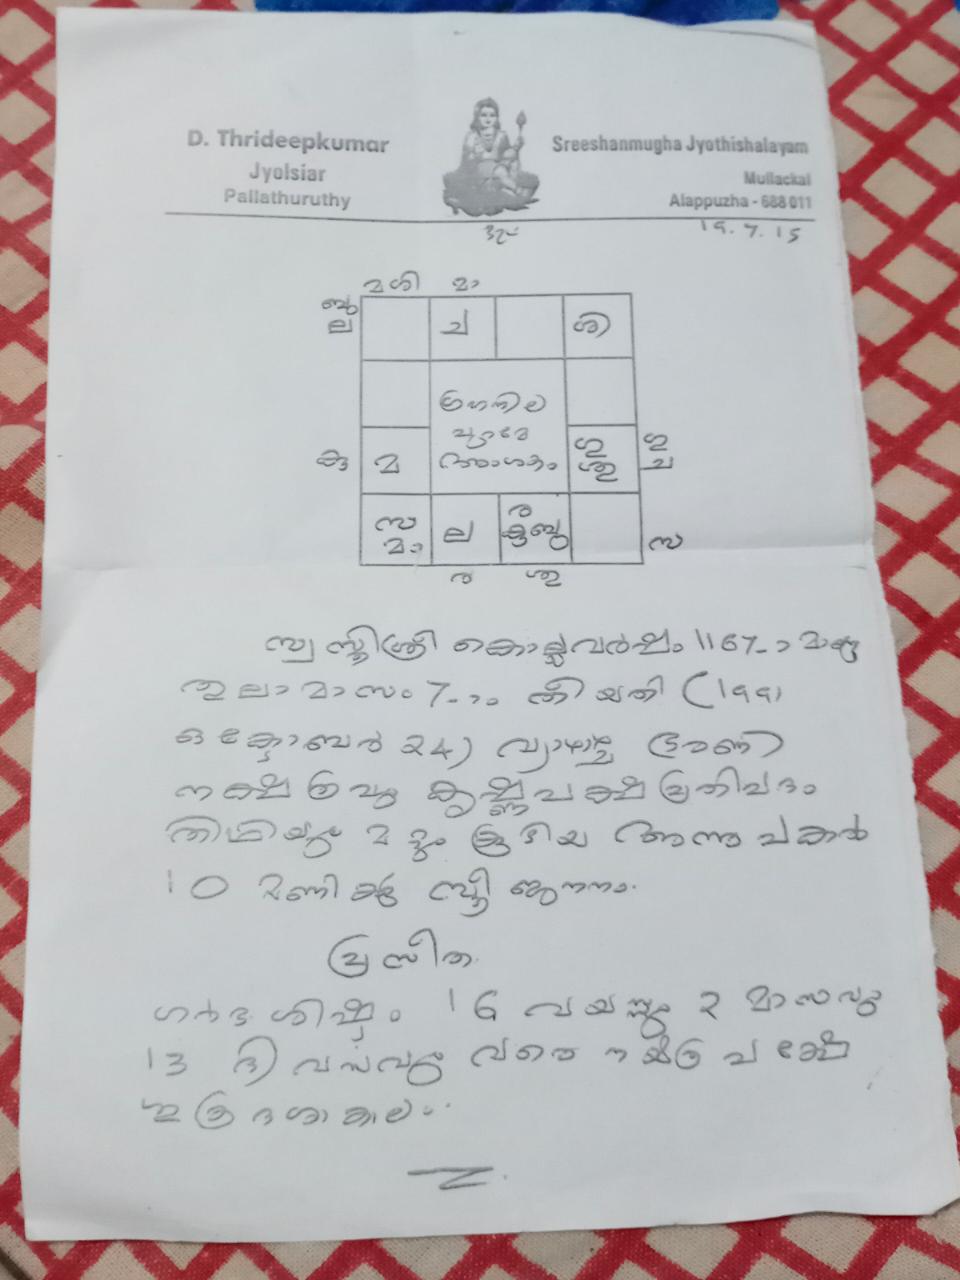 D. Thrideepkumar
Jyolsiar
Pallathuruthy
Sreeshanmugha Jyothishalayam
Mullackal
Alappuzha - 688 011
19.7.15
മ ശി മാ
ബു
ല
ച
ശി
ഗ്രഹനില
അംശകം
കു മ
ഗു
ശു
ഗു
ച
സ
മാ
ല
ര
കുബു
സ
ര ശു
സ്വസ്തിശ്രീ കൊല്ലവർഷം 1167-ാമാണ്ടു
തുലാമാസം 7-ാം തീയതി (1991
ഒക്ടോബർ 24) വ്യാഴാഴ്ച ഭരണി
നക്ഷത്രവും കൃഷ്ണപക്ഷ പ്രതിപദം
തിഥിയും മറ്റും കൂടിയ അന്നു പകൽ
10 മണിക്കു സ്ത്രീ ജനനം.
ഗർഭശിഷ്ടം 16 വയസ്സും 2 മാസവും
13 ദിവസവും വരെ
ശുക്രദശാകാലം..